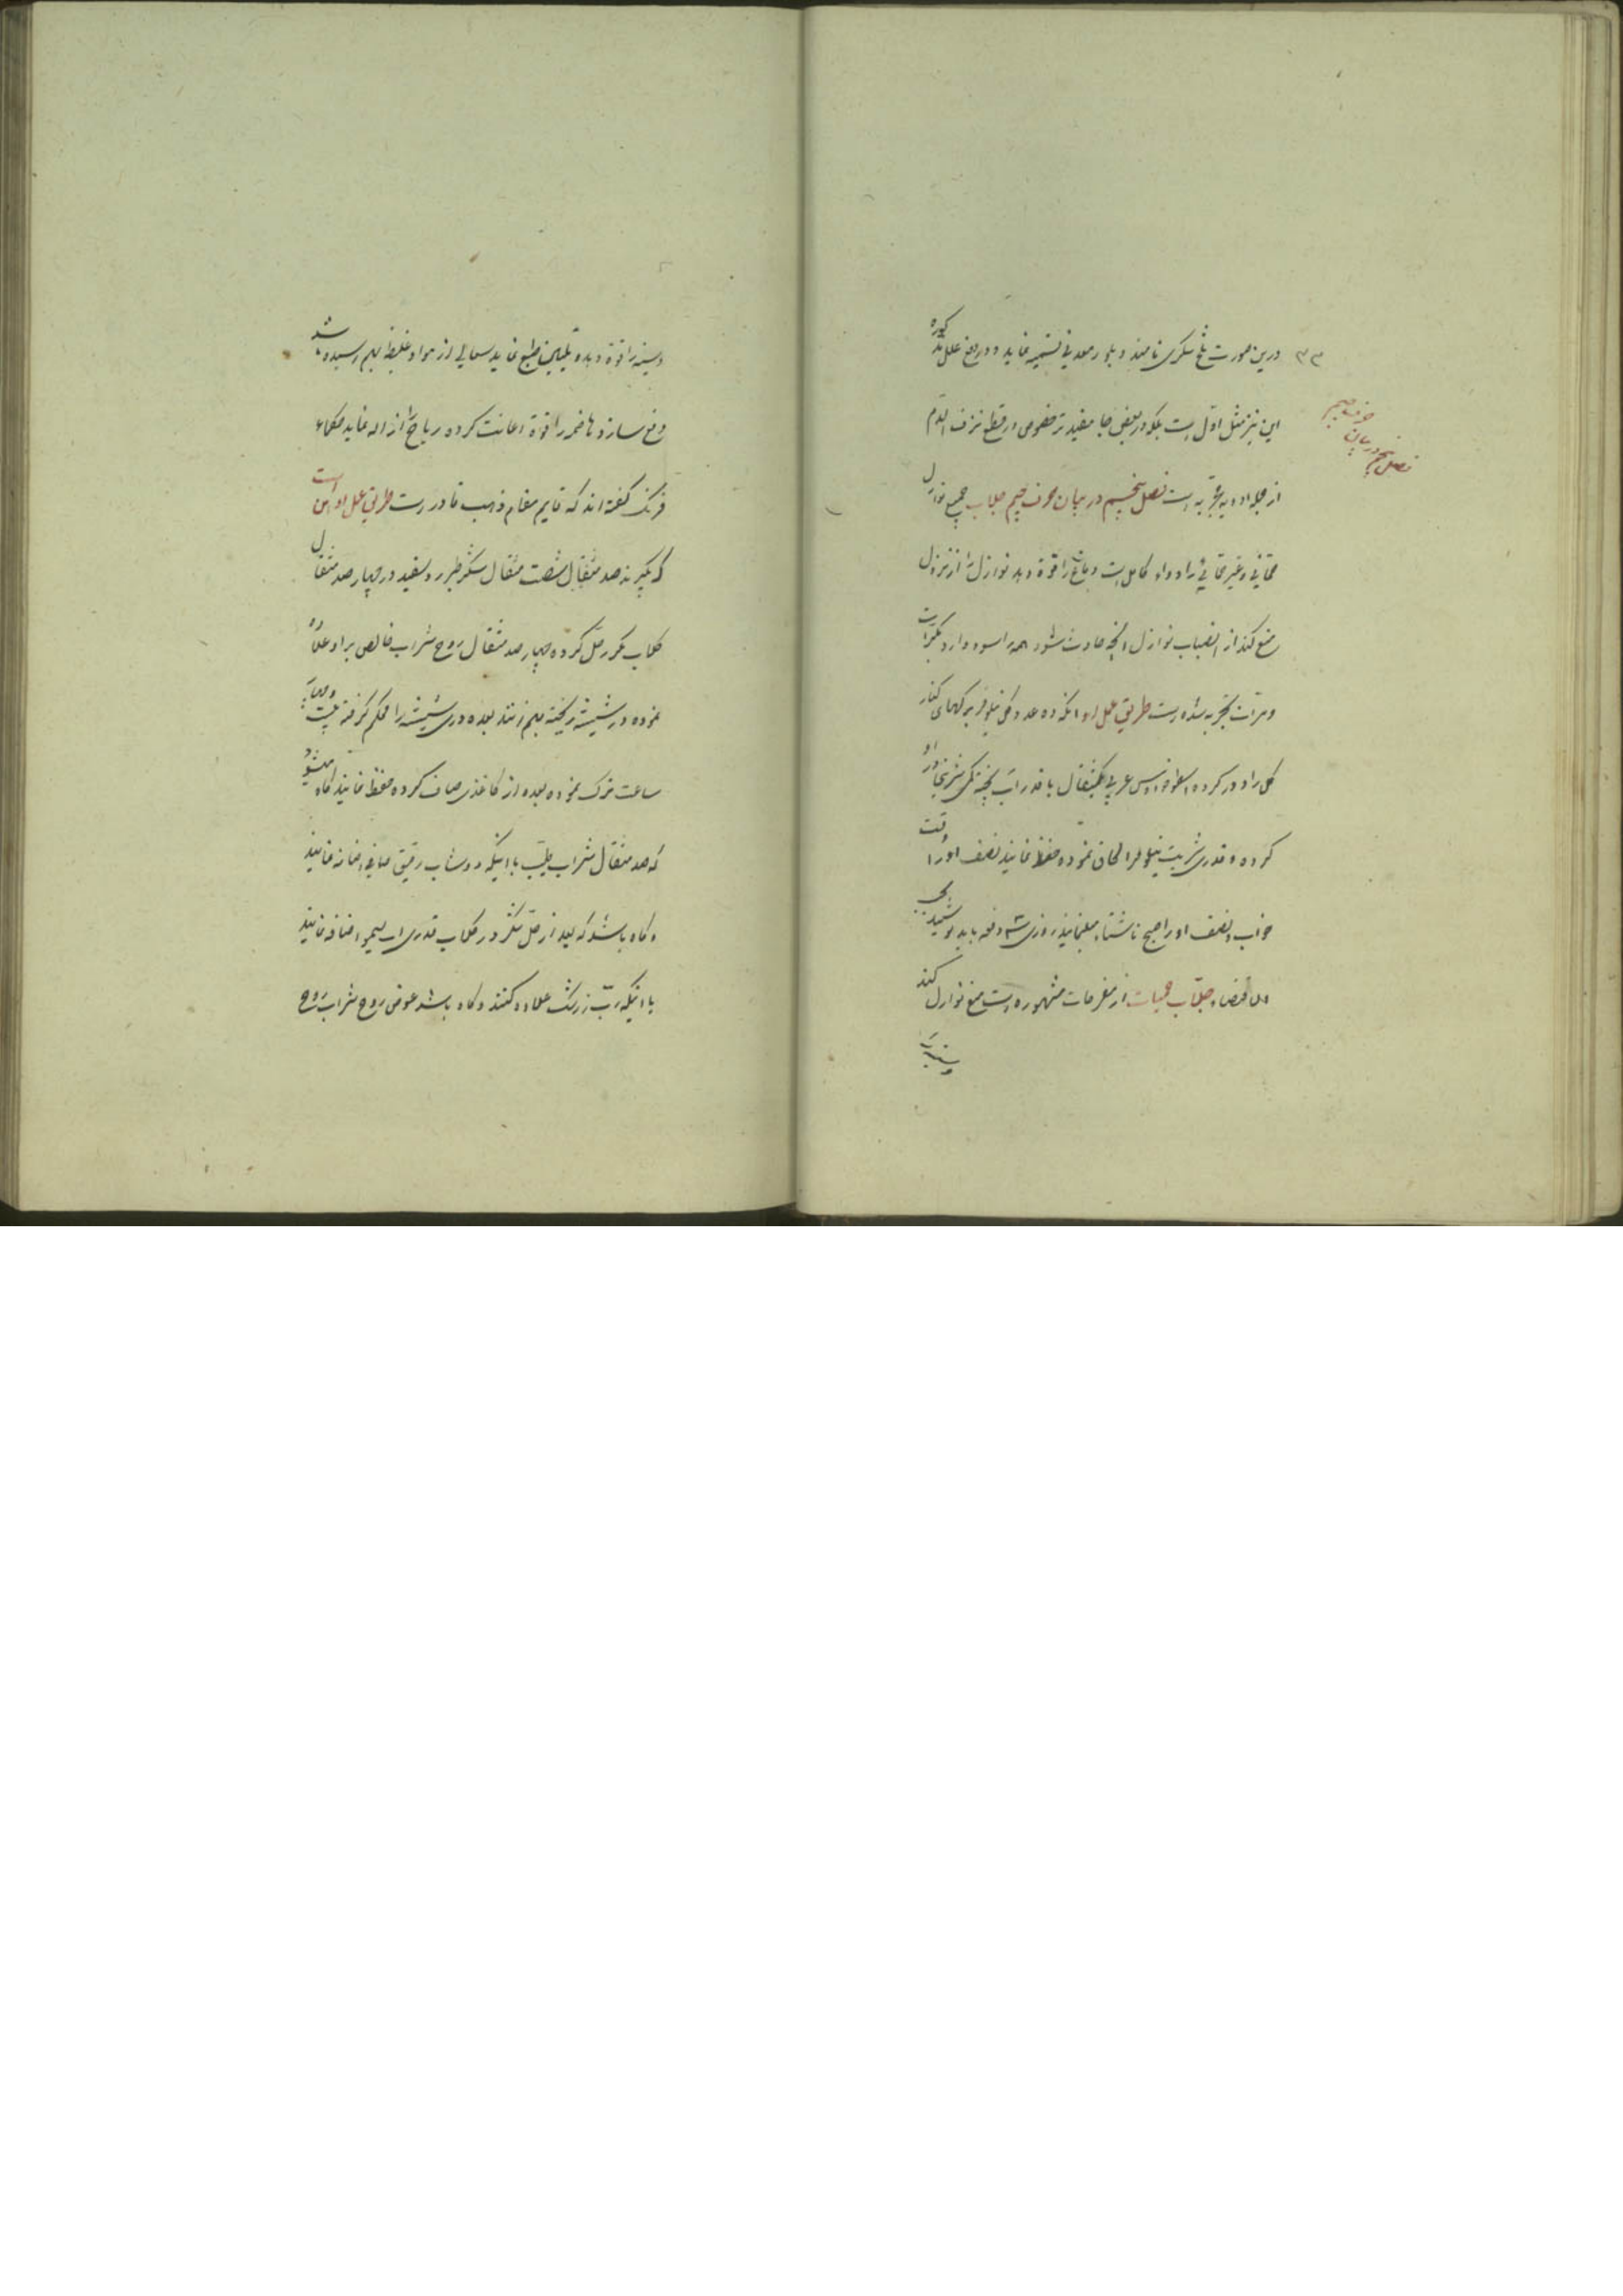 درین صورت تاخ شکری نامند و بلور معدنی تسمیه نماید و در دفع علل مذکوره
این نیز مثل اول است بلکه در بعض جا مفید تر خصوص در قطع نزف الدم
از جمله ادویه مجربه است فصل پنجم در بیان حرف جیم جلاب جمیع نوازل
را دواء کامل است دماغ را قوة دهد نوازل را از نزول
منع کند از انصباب نوازل آنچه حادث شود همه را سود دارد بکرات
و مرات تجربه شده است طریق عمل او آنکه ده عدد گل نیلوفر برگهای کنار
گل را دور کرده اسطوخودوس عربی یکمثقال با قدر آب پخته
کرده و قدری شربت نیلوفر الحاق نموده حفظ نمایند نصف او را وقت
خواب و نصف او را صبح ناشتا روزی دفعه باید نوشید بحسب
الاقتضاء جلاب حمیات از مفرحات مشهوره است منع نوازل کند
وسینه را
فصل پنجم در بیان
حرف جیم
۳۳
وسینه را قوة دهد و تلیین طبع نماید سعالی از مواد غلیظ بهم رسیده باشد
دفع سازد و هاضمه را قوة اعانت کرده ریاح را ازاله نماید حکماء
فرنگ گفته اند که قایم مقام ذهب قادر است طریق عمل او این است
که بگیرند صد مثقال شصت مثقال شکر طبرزد سفید در چهار صد مثقال
گلاب مکرر حل کرده چهار صد مثقال روح شراب خالص بر او علاوه
نموده در شیشه ریخته بهم زنند بعده در شیشه را محکم گرفته بیست و چهار
ساعت ترک نموده بعده از کاغذی صاف کرده حفظ نمایند گاه میشود
که صد مثقال شراب طیب با اینکه دوشاب رقیق صافی اضافه نمایند
و گاه باشد که بعد از حل شکر در گلاب قدری آب لیمو اضافه نمایند
یا اینکه رب زرشک علاوه کنند و گاه باشد عوض روح شراب روح